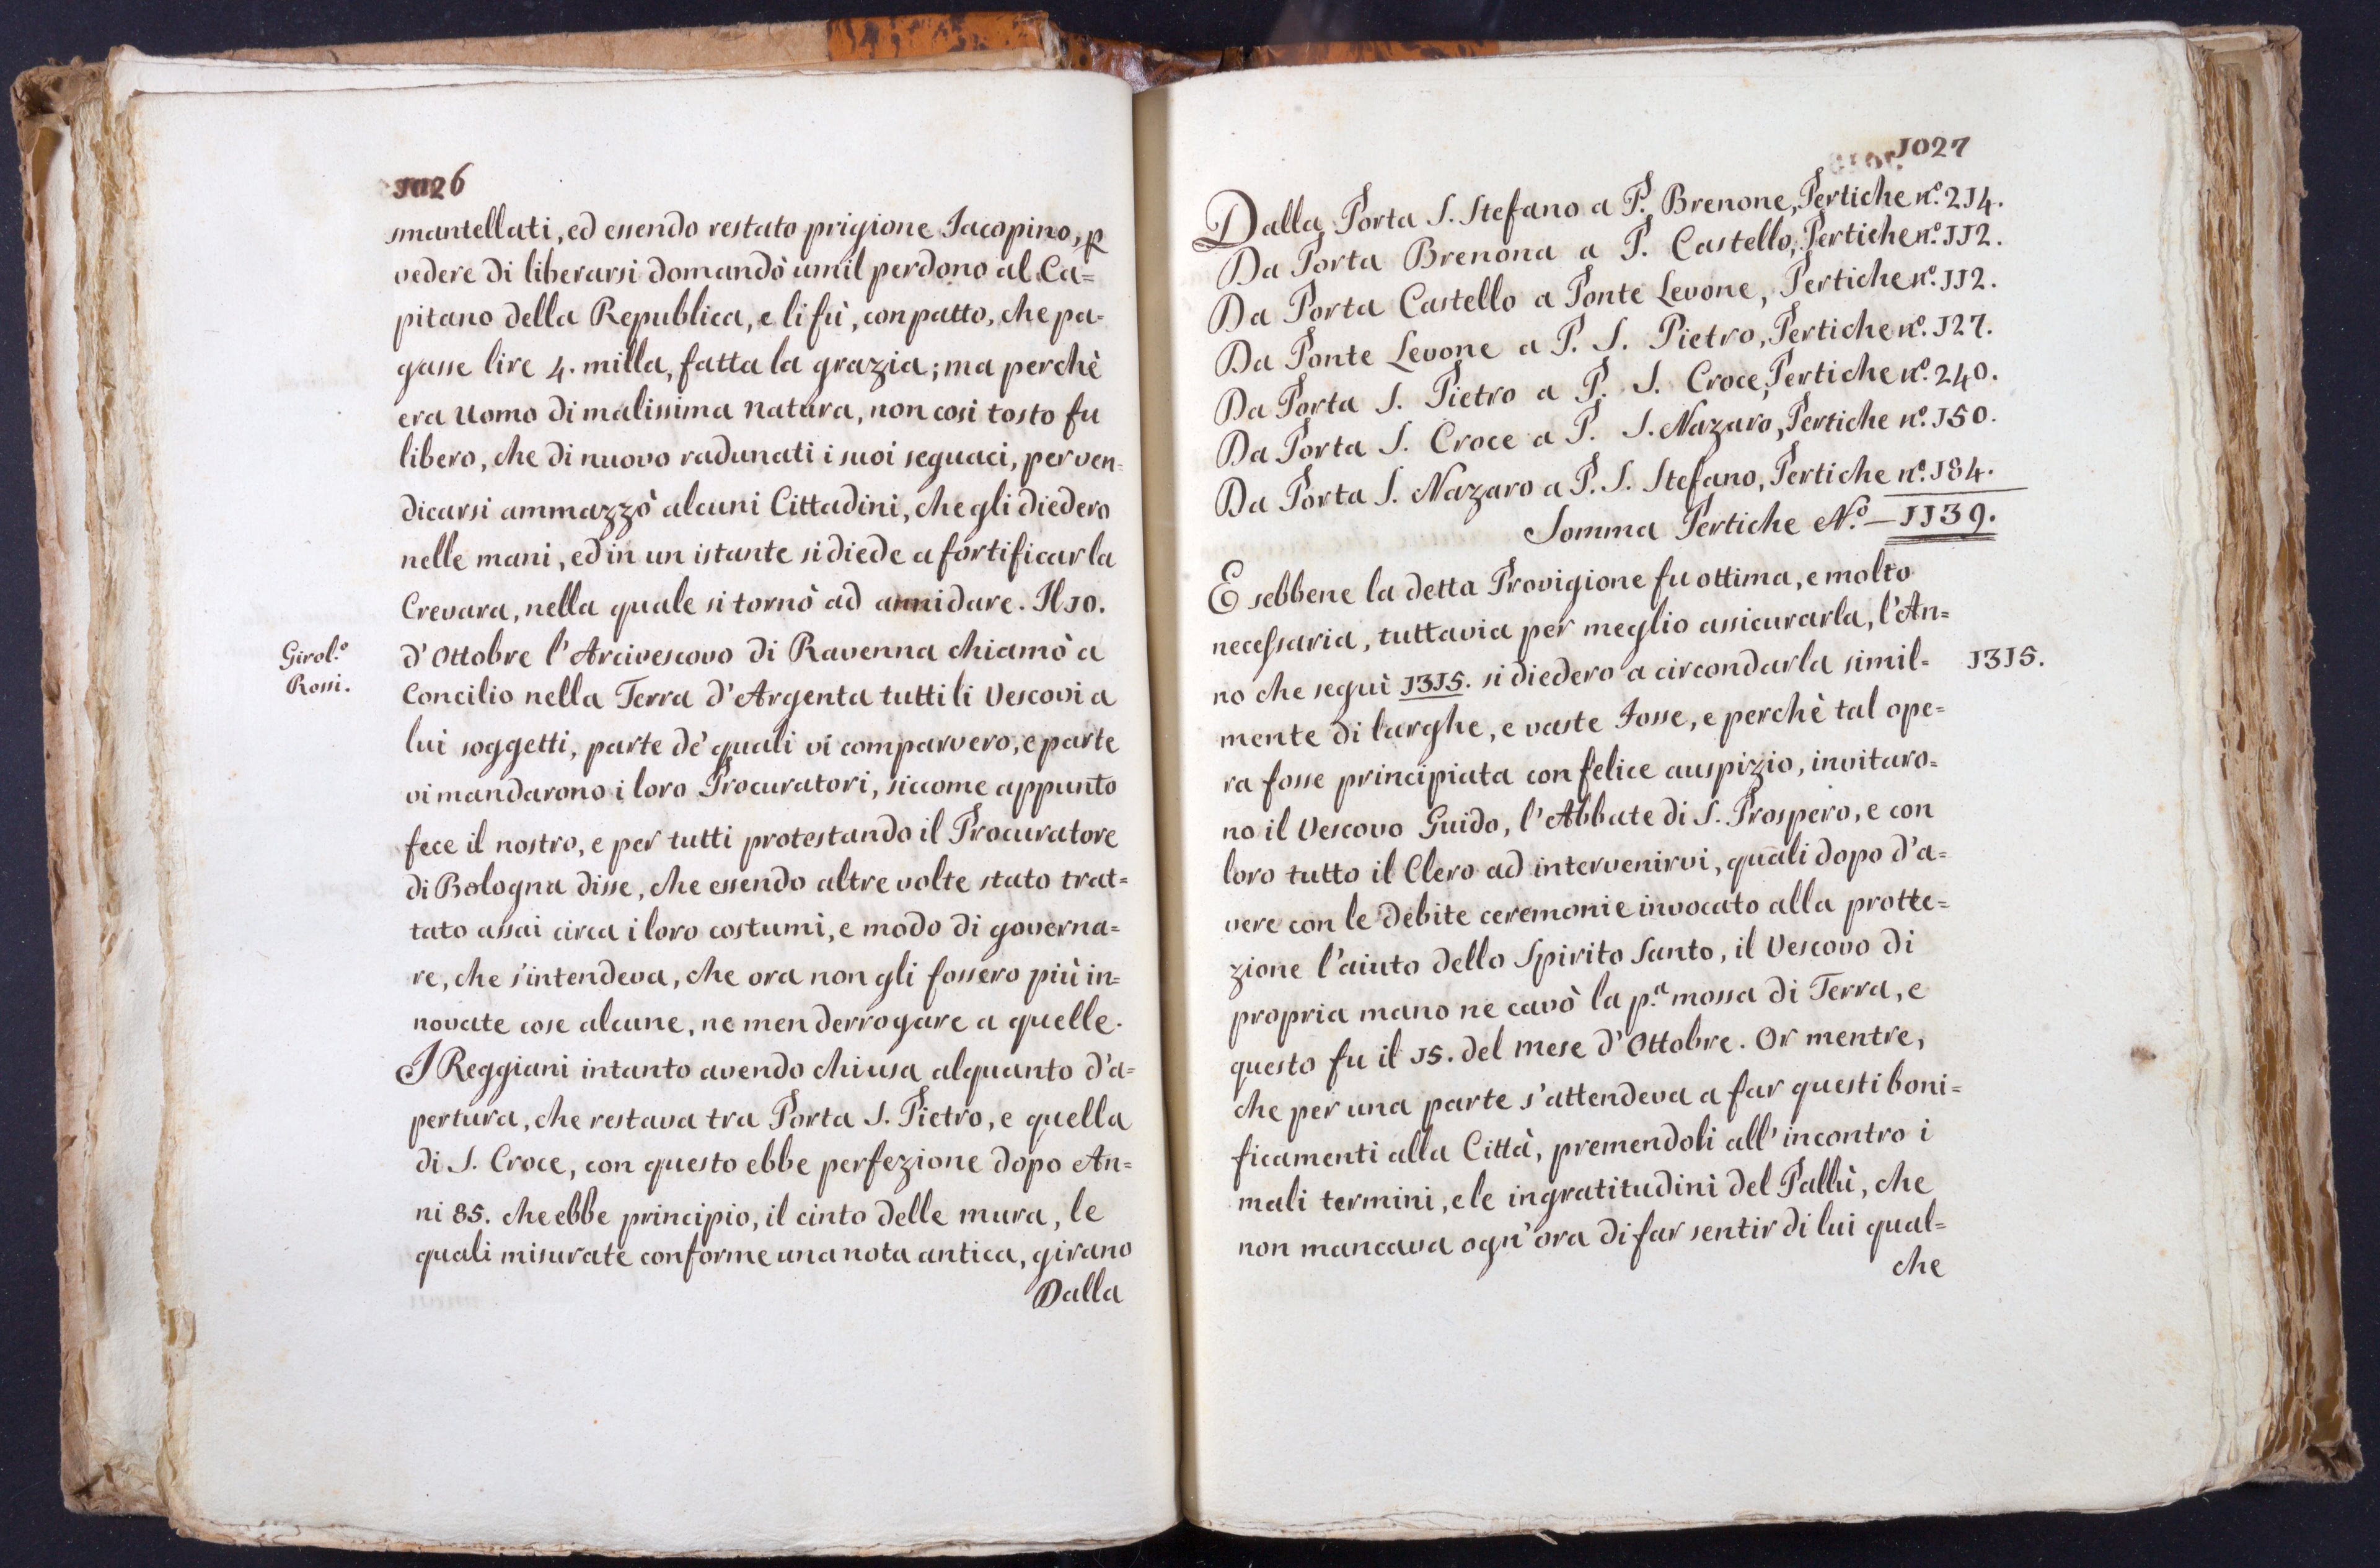 1026
smantellati, ed essendo restato prigione Iacopino, p
vedere di liberarsi domandò umil perdono al Ca=
pitano della Republica, e li fù, con patto, che pa-
gasse lire 4. milla, fatta la grazia; ma perchè
era Uomo di malissima natura, non così tosto fu
libero, che di nuovo radunati i suoi seguaci, per ven=
dicarsi ammazzò alcuni Cittadini, che gli diedero
nelle mani, ed in un istante si diede a fortificar la
Crevara, nella quale si tornò ad annidare. Il 10.
Girol.o
Rossi.
d'Ottobre l'Arcivescovo di Ravenna chiamò a
Concilio nella Terra d'Argenta tutti li Vescovi a
lui soggetti, parte de' quali vi comparvero, e parte
vi mandarono i loro Procuratori, siccome appunto
fece il nostro, e per tutti protestando il Procuratore
di Bologna disse, che essendo altre volte stato trat=
tato assai circa i loro costumi, e modo di governa=
re, che s'intendeva, che ora non gli fossero più in=
novate cose alcune, ne men derrogare a quelle.
I Reggiani intanto avendo chiusa alquanto d'a=
pertura, che restava tra Porta S. Pietro, e quella
di S. Croce, con questo ebbe perfezione dopo An=
ni 85. che ebbe principio, il cinto delle mura, le
quali misurate conforme una nota antica, girano
Dalla
1027
Dalla Porta S. Stefano a P. Brenone, Pertiche n.o 214.
Da Porta Brenona a P. Castello, Pertiche n.o 112.
Da Porta Castello a Ponte Levone, Pertiche n.o 112.
Da Ponte Levone a P. S. Pietro, Pertiche n.o 127.
Da Porta S. Pietro a P. S. Croce, Pertiche n.o 240.
Da Porta S. Croce a P. S. Nazaro, Pertiche n.o 150.
Da Porta S. Nazaro a P. S. Stefano, Pertiche n.o 184.
Somma Pertiche N.o — 1139.
E sebbene la detta Provigione fu ottima, e molto
necessaria, tuttavia per meglio assicurarla, l'An=
no che seguì 1315. si diedero a circondarla simil= 1315.
mente di larghe, e vaste Fosse, e perchè tal ope=
ra fosse principiata con felice auspizio, invitaro=
no il Vescovo Guido, l'Abbate di S. Prospero, e con
loro tutto il Clero ad intervenirvi, quali dopo d'a=
vere con le debite ceremonie invocato alla protte=
zione l'aiuto dello Spirito Santo, il Vescovo di
propria mano ne cavò la p.a mossa di Terra, e
questo fu il 15. del mese d'Ottobre. Or mentre,
che per una parte s'attendeva a far questi boni=
ficamenti alla Città, premendoli all'incontro i
mali termini, e le ingratitudini del Pallù, che
non mancava ogn'ora di far sentir di lui qual=
che